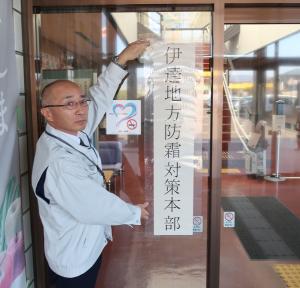 伊達地方防霜対策本部
ま